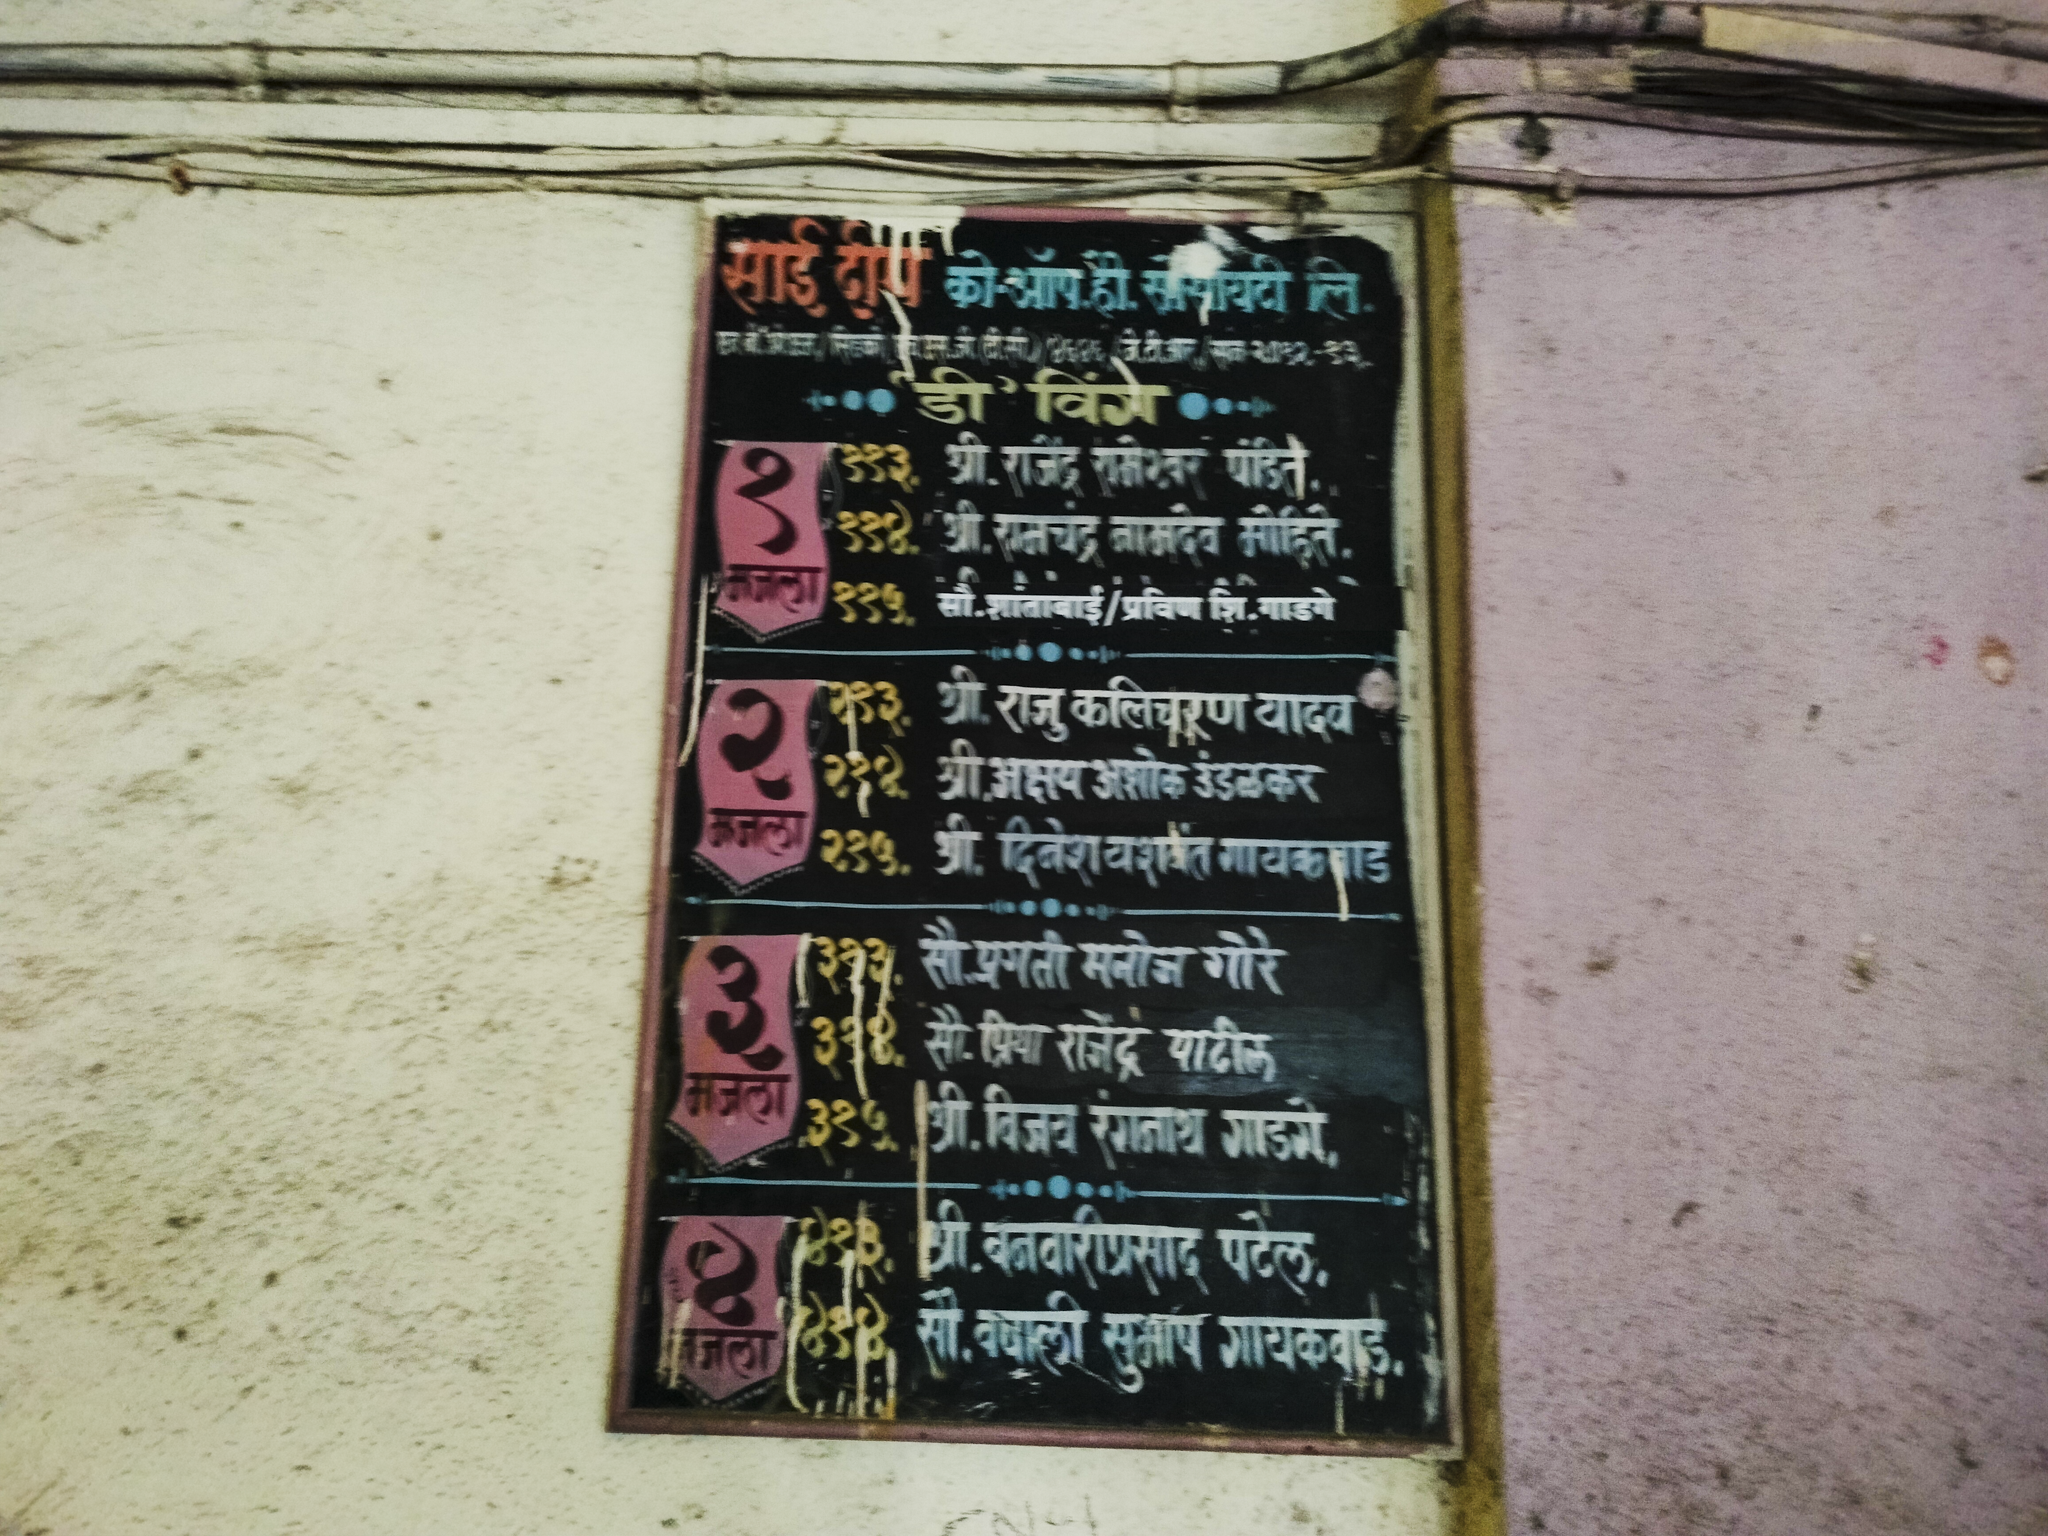 साई दीप को-ऑप.हौ. सोसायटी लि.
'डी' विंग
१ मजला
११३. श्री. राजेंद्र रामेश्वर पंडित.
११४. श्री. रामचंद्र नामदेव मोहिते.
११५. सौ. शांताबाई/प्रविण शि. गाडगे
२ मजला
२१३. श्री. राजु कलिचरण यादव
२१४. श्री. अक्षय अशोक उंडळकर
२१५. श्री. दिनेश यशवंत गायकवाड
३ मजला
३१३. सौ. प्रगती मनोज गोरे
३१४. सौ. प्रिया राजेंद्र पाटील
३१५. श्री. विजय रंगनाथ गाडगे.
४ मजला
४१३. श्री. बनवारीप्रसाद पटेल.
४१४. सौ. वैशाली सुभाष गायकवाड.